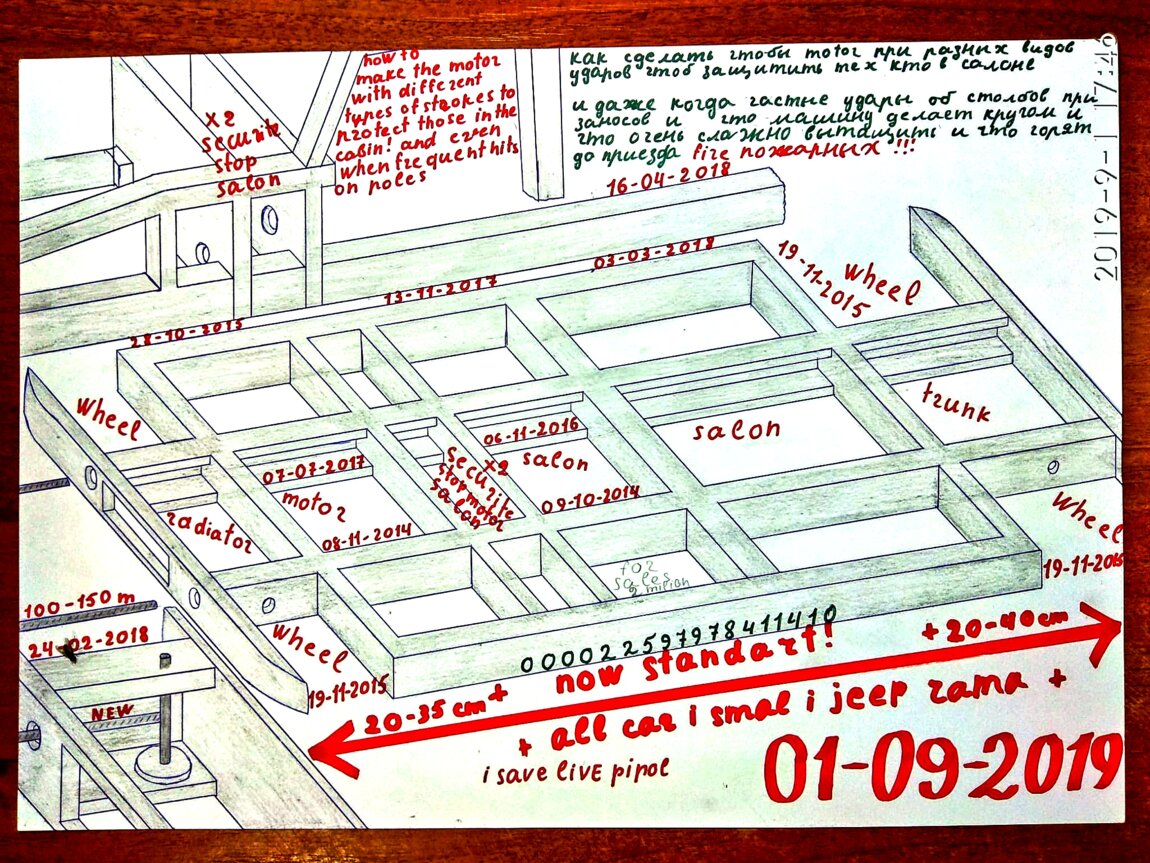 how to
make the motor
with different
types of strokes to
protect those in the
cabin! and even
when frequent hits
on poles
как сделать чтобы motor при разных видов
ударов чтоб защитить тех кто в салоне
и даже когда частые удары об столбов при
заносов и что машину делает кругом и
что очень сложно вытащить и что горят
до приезда fire пожарных !!!
2019-9-1 17:46
x2
securite
stop
salon
16-04-2018
03-03-2018
13-11-2017
28-10-2015
19-11-2015
wheel
wheel
trunk
salon
06-11-2016
salon
securite
x2
stop motor
salon
09-10-2014
07-07-2017
motor
08-11-2014
radiator
for
sales
2 milion
wheel
19-11-2015
wheel
19-11-2015
100-150 m
24-02-2018
NEW
0000225979784 11410
now standart!
20-35 cm +
+ 20-40 cm
+ all car i smal i jeep rama +
i save live pipol
01-09-2019